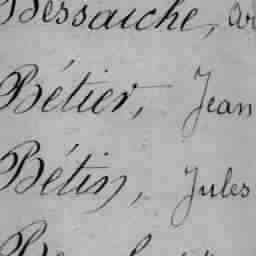 Dessaiche, Ar
Bétier, Jean
Bétin, Jules